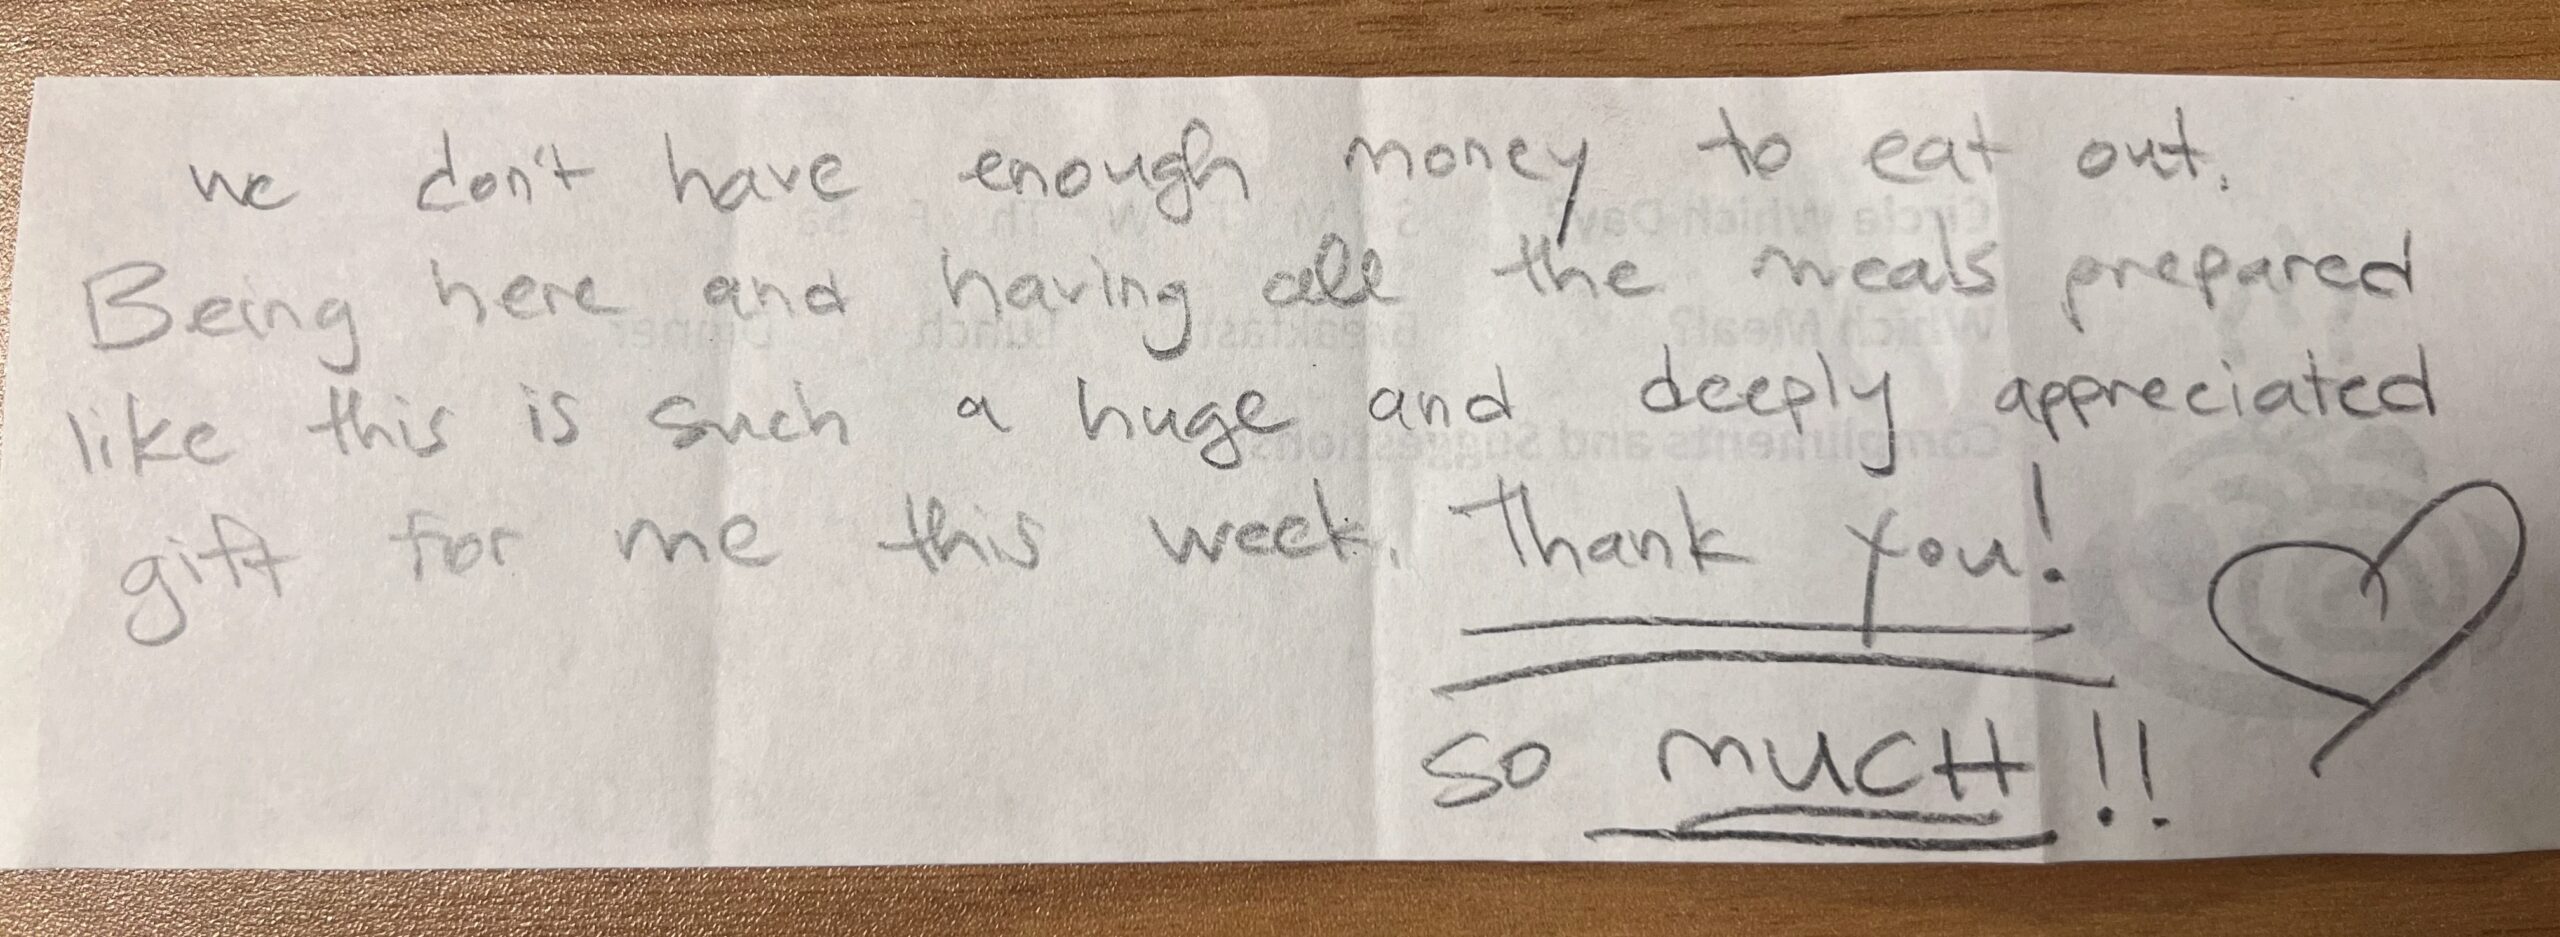 we don't have enough money to eat out.
Being here and having all the meals prepared
like this is such a huge and deeply appreciated
gift for me this week. Thank you!
so MUCH!!
Circle Which Day? S M T W Th F Sa
Which Meal? Breakfast Lunch Dinner
Compliments and Suggestions: